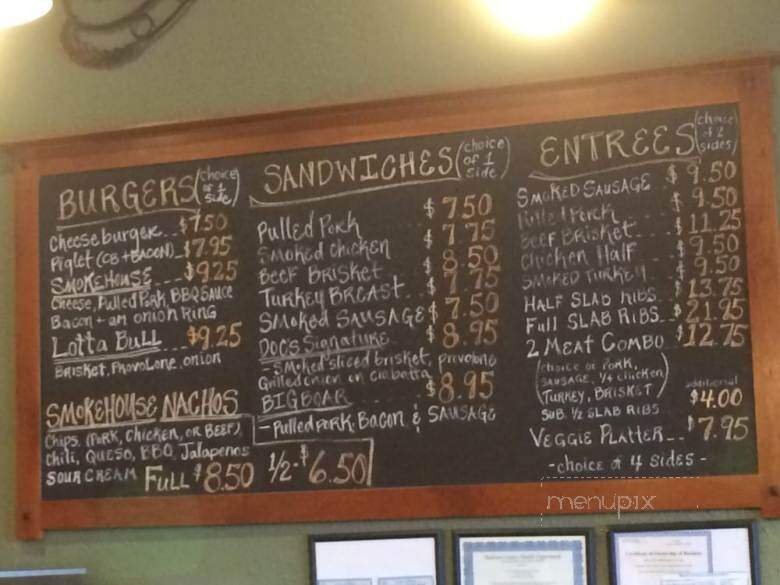 BURGERS (choice of 1 side)
Cheeseburger $7.50
Piglet (CB + BACON) $7.95
SMOKEHOUSE $9.25
Cheese, Pulled Pork, BBQ SAUCE
Bacon + an onion Ring
Lotta BuLL $9.25
BRISKET, PROVOLONE, onion
SMOKEHOUSE NACHOS
Chips, (PORK, Chicken, OR BEEF),
Chili, QUESO, BBQ, Jalapenos
SOUR CREAM FuLL $8.50 1/2- $6.50
SANDWICHES (choice of 1 side)
Pulled Pork $7.50
Smoked Chicken $7.75
BEEF BRISKET $8.50
TURKEY BREAST $7.75
SMOKED SAUSAGE $7.50
DOC'S Signature $8.95
- Smoked sliced brisket, provolone
Grilled onion on ciabatta
BIG BOAR $8.95
- Pulled Pork, Bacon & SAUSAGE
ENTREES (choice of 2 sides)
SMOKED SAUSAGE $9.50
Pulled Pork $9.50
BEEF BRISKET $11.25
Chicken Half $9.50
SMOKED TURKEY $9.50
HALF SLAB RIBS $13.75
Full SLAB RIBS $21.95
2 MEAT COMBO $12.75
(choice of PORK,
SAUSAGE, 1/4 chicken,
TURKEY, BRISKET)
additional
SUB 1/2 SLAB RIBS $4.00
VEGGIE PLATTER $7.95
- choice of 4 sides -
menupix